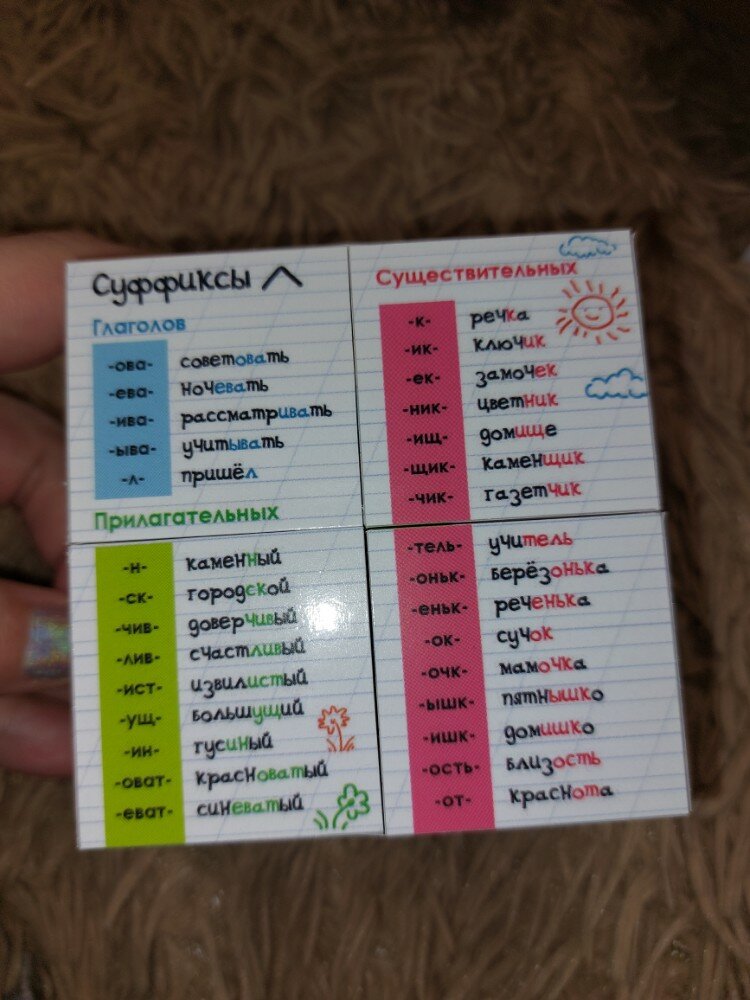 Суффиксы
Глаголов
-ова- советовать
-ева- ночевать
-ива- рассматривать
-ыва- учитывать
-л- пришёл
Прилагательных
-н- каменный
-ск- городской
-чив- доверчивый
-лив- счастливый
-ист- извилистый
-ущ- большущий
-ин- гусиный
-оват- красноватый
-еват- синеватый
Существительных
-к- речка
-ик- ключик
-ек- замочек
-ник- цветник
-ищ- домище
-щик- каменщик
-чик- газетчик
-тель- учитель
-оньк- берёзонька
-еньк- реченька
-ок- сучок
-очк- мамочка
-ышк- пятнышко
-ишк- домишко
-ость- близость
-от- краснота